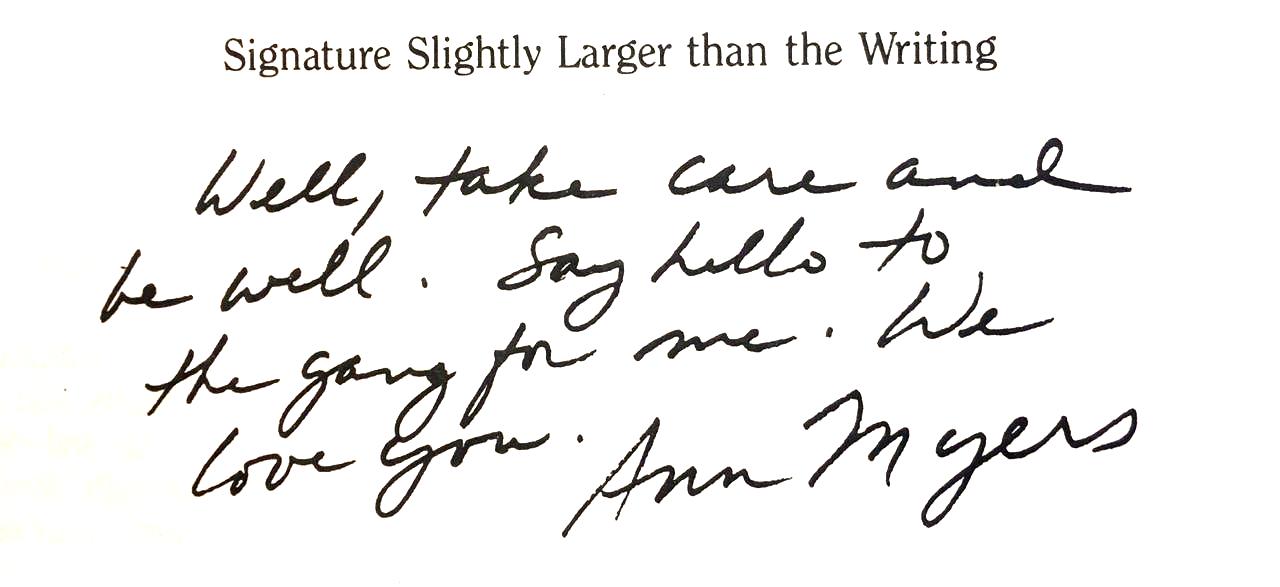 Signature Slightly Larger than the Writing
Well, take care and
be well. Say hello to
the gang for me. We
love you. Ann Myers